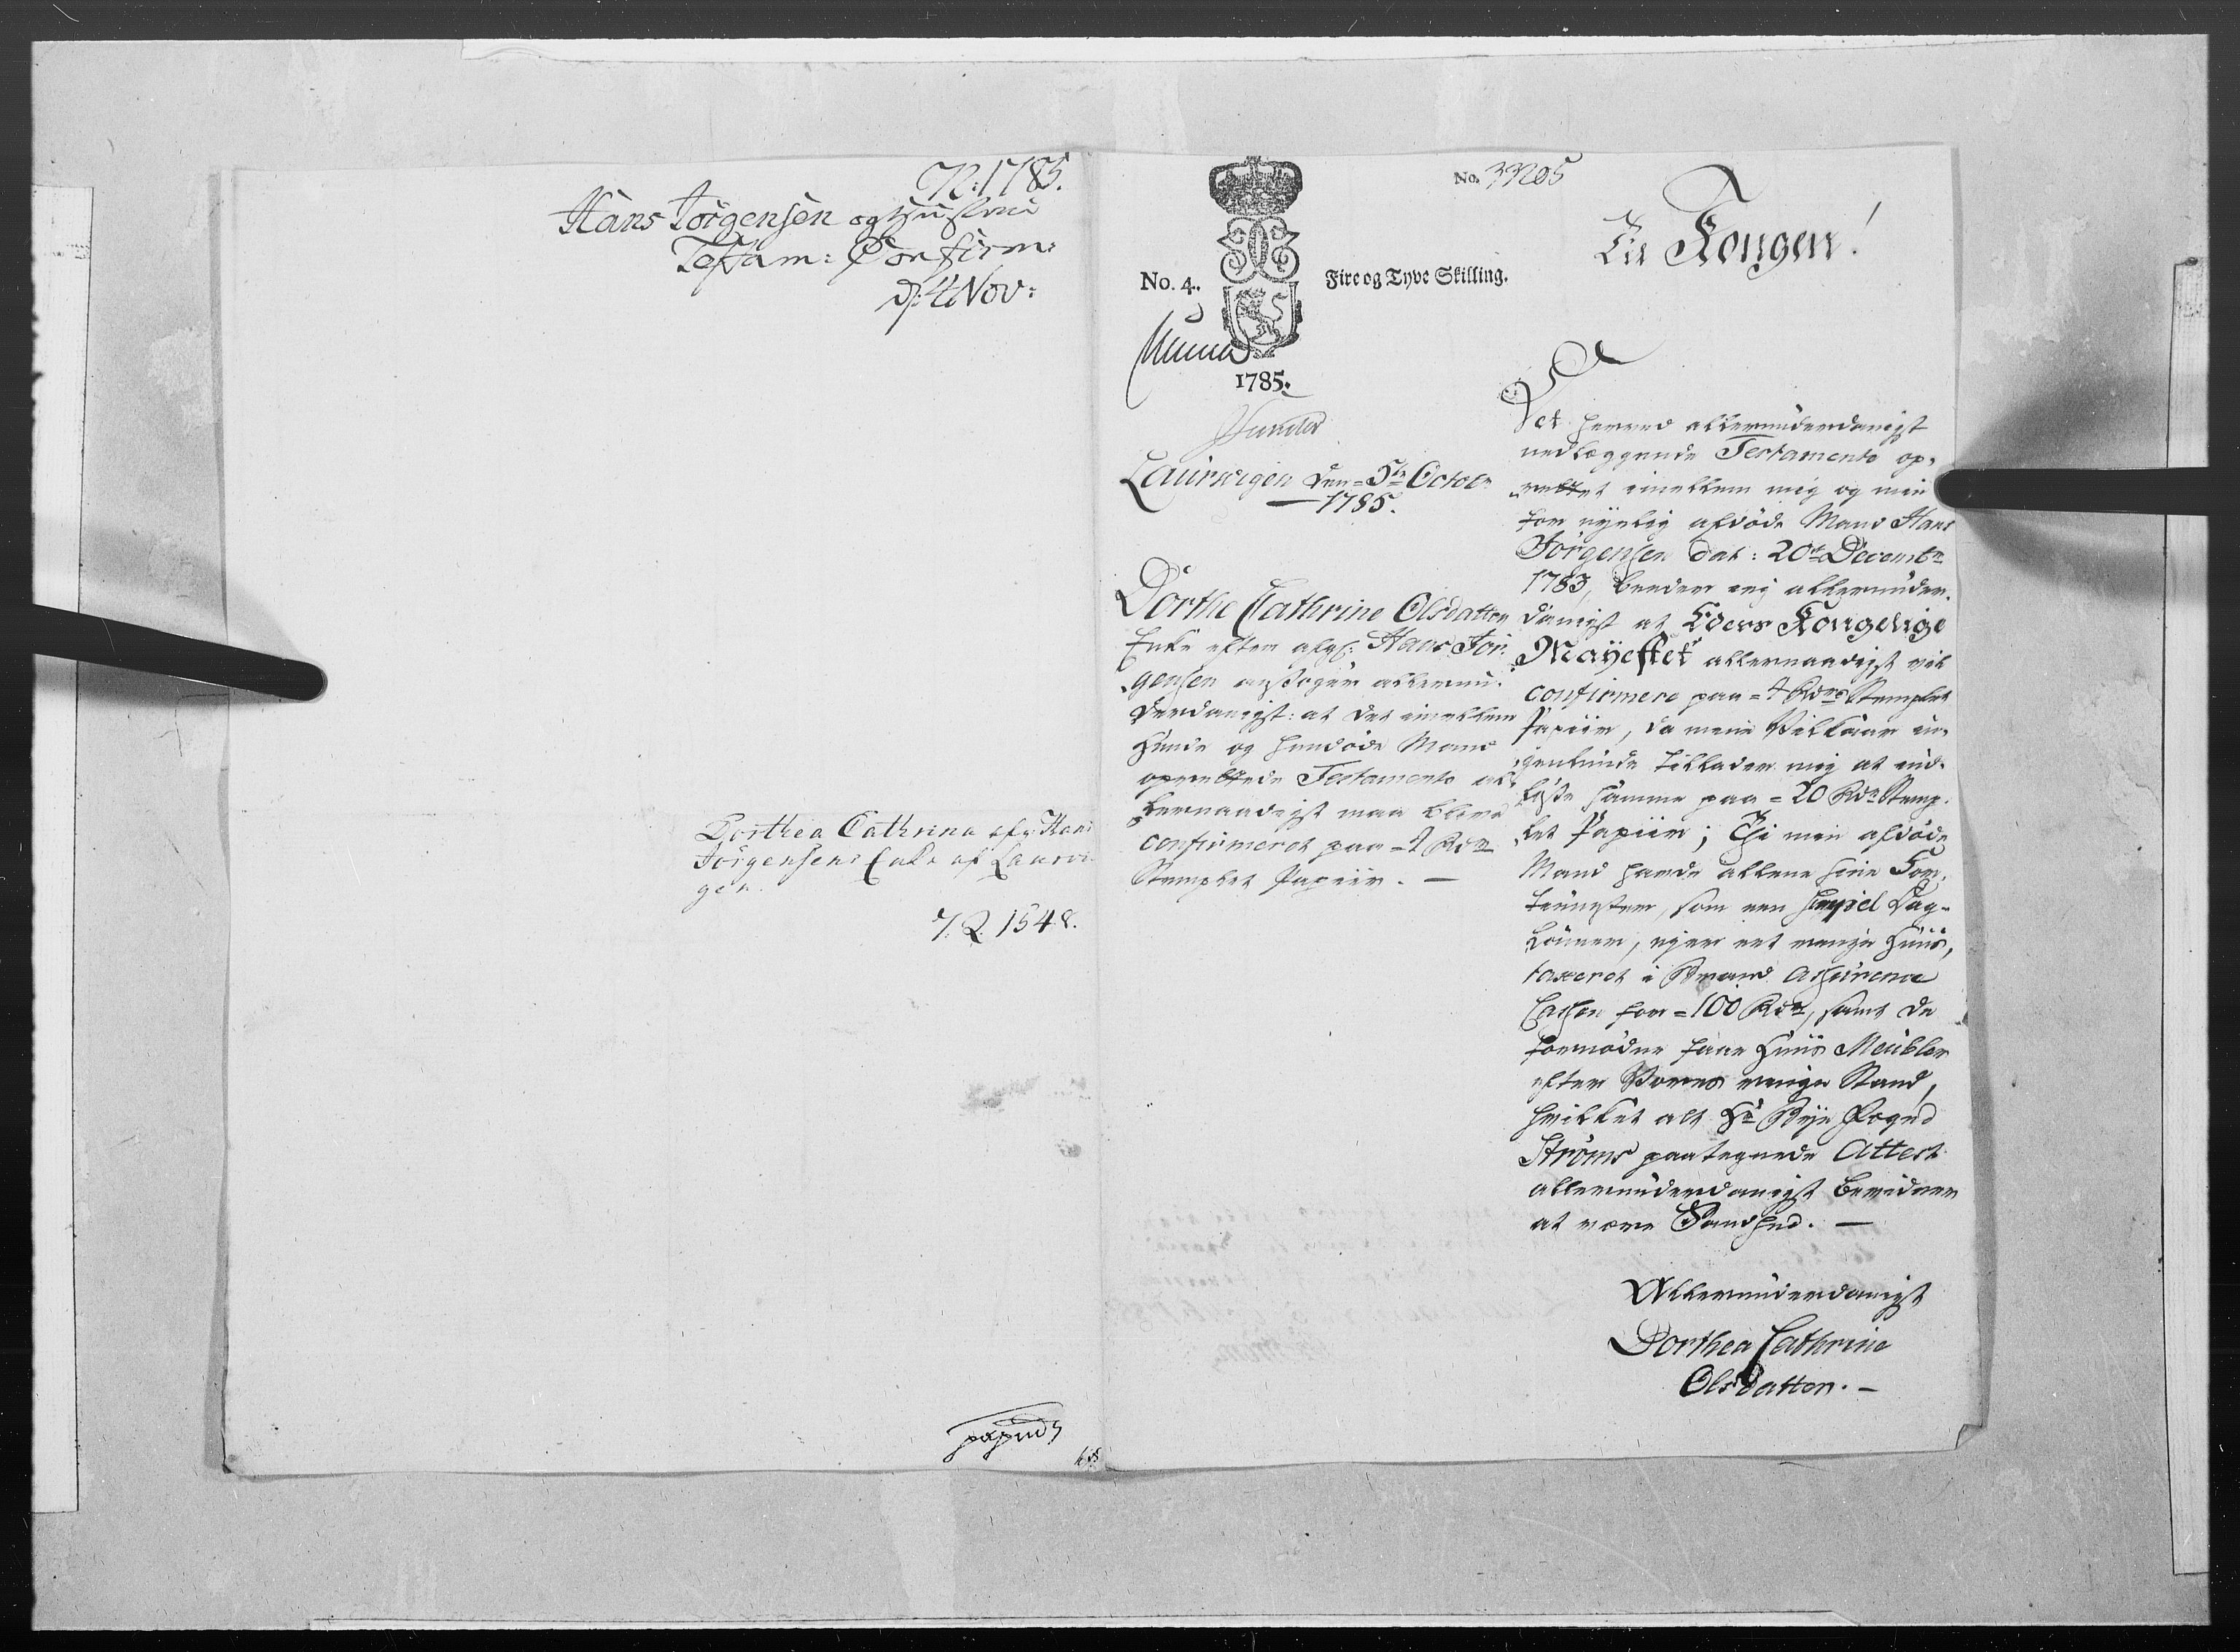 N: 1785.
Hans Jørgensen og Hustrue
Testam: Confirm:
d: 4 Nov:
Dorthea Cathrina afg: Hans
Jørgensens Enke af Laurvi-
gen.
7. Q. 1548.
No. 33205
No. 4.
Fire og Tyve Skilling.
1785.
Laurvigen den 5te Octobr
1785.
Dorthe Cathrine Olsdatter
Enke efter afg: Hans Jør-
gensen ansøger allerun-
derdanigst: at det imellem
hende og hendøde Mand
oprettede Testamente al-
lernaadigst maa blive
confirmeret paa = 4 Rdrs
Stemplet Papiir. —
Til Kongen!
Det herved allerunderdanigst
nedlæggende Testamente op-
rettet imellem mig og min
for nyelig afdøde Mand Hans
Jørgensen dat: 20de Decembr
1783, beeder ieg allerunder-
danigst at Eders Kongelige
Mayestet allernaadigst vil
confirmere paa = 4 Rdrs Stemplet
Papiir, da mine Vilkaar in-
genlunde tillader mig at ind-
løse samme paa = 20 Rdrs Stemp-
let Papiir; Thi min afdøde
Mand havde allene sine For-
tienester, som een simpel Dag-
lønner, eyer eet ringe Huus,
taxeret i Brand Assurence
Cassen for = 100 Rdr, samt de
fornødne faae Huus Meubler
efter Vores ringe Stand,
hvilket alt Hr Bye Foged
Strøms paategnede Attest
allerunderdanigst bevidner
at være Sandhed. —
Allerunderdanigst
Dorthea Cathrine
Olsdatter. —